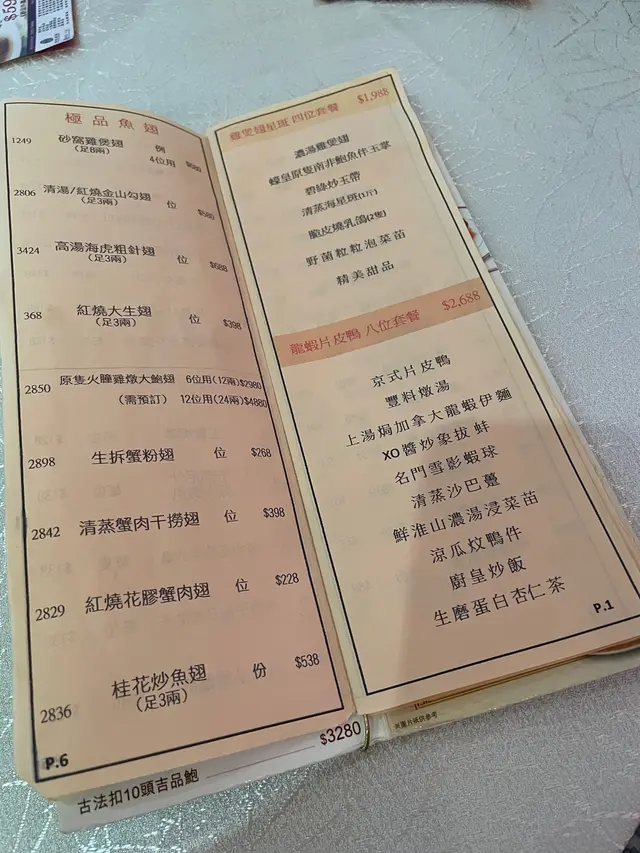 極品魚翅
1249 砂窩雞煲翅 例
(足8兩) 4位用 $680
2806 清湯/紅燒金山勾翅 位
(足3兩) $580
3424 高湯海虎粗針翅 位
(足3兩) $688
368 紅燒大生翅 位 $398
(足3兩)
2850 原隻火朣雞燉大鮑翅 6位用(12兩)$2980
(需預訂) 12位用(24兩)$4880
2898 生拆蟹粉翅 位 $268
2842 清蒸蟹肉干撈翅 位 $398
2829 紅燒花膠蟹肉翅 位 $228
2836 桂花炒魚翅 份 $538
(足3兩)
P.6
雞煲翅星斑 四位套餐 $1,988
濃湯雞煲翅
蠔皇原隻南非鮑魚伴玉掌
碧綠炒玉帶
清蒸海星斑(1斤)
脆皮燒乳鴿(2隻)
野菌粒粒泡菜苗
精美甜品
龍蝦片皮鴨 八位套餐 $2,688
京式片皮鴨
豐料燉湯
上湯焗加拿大龍蝦伊麵
XO醬炒象拔蚌
名門雪影蝦球
清蒸沙巴躉
鮮淮山濃湯浸菜苗
涼瓜炆鴨件
廚皇炒飯
生磨蛋白杏仁茶
P.1
古法扣10頭吉品鮑 $3280
※圖片祇供參考